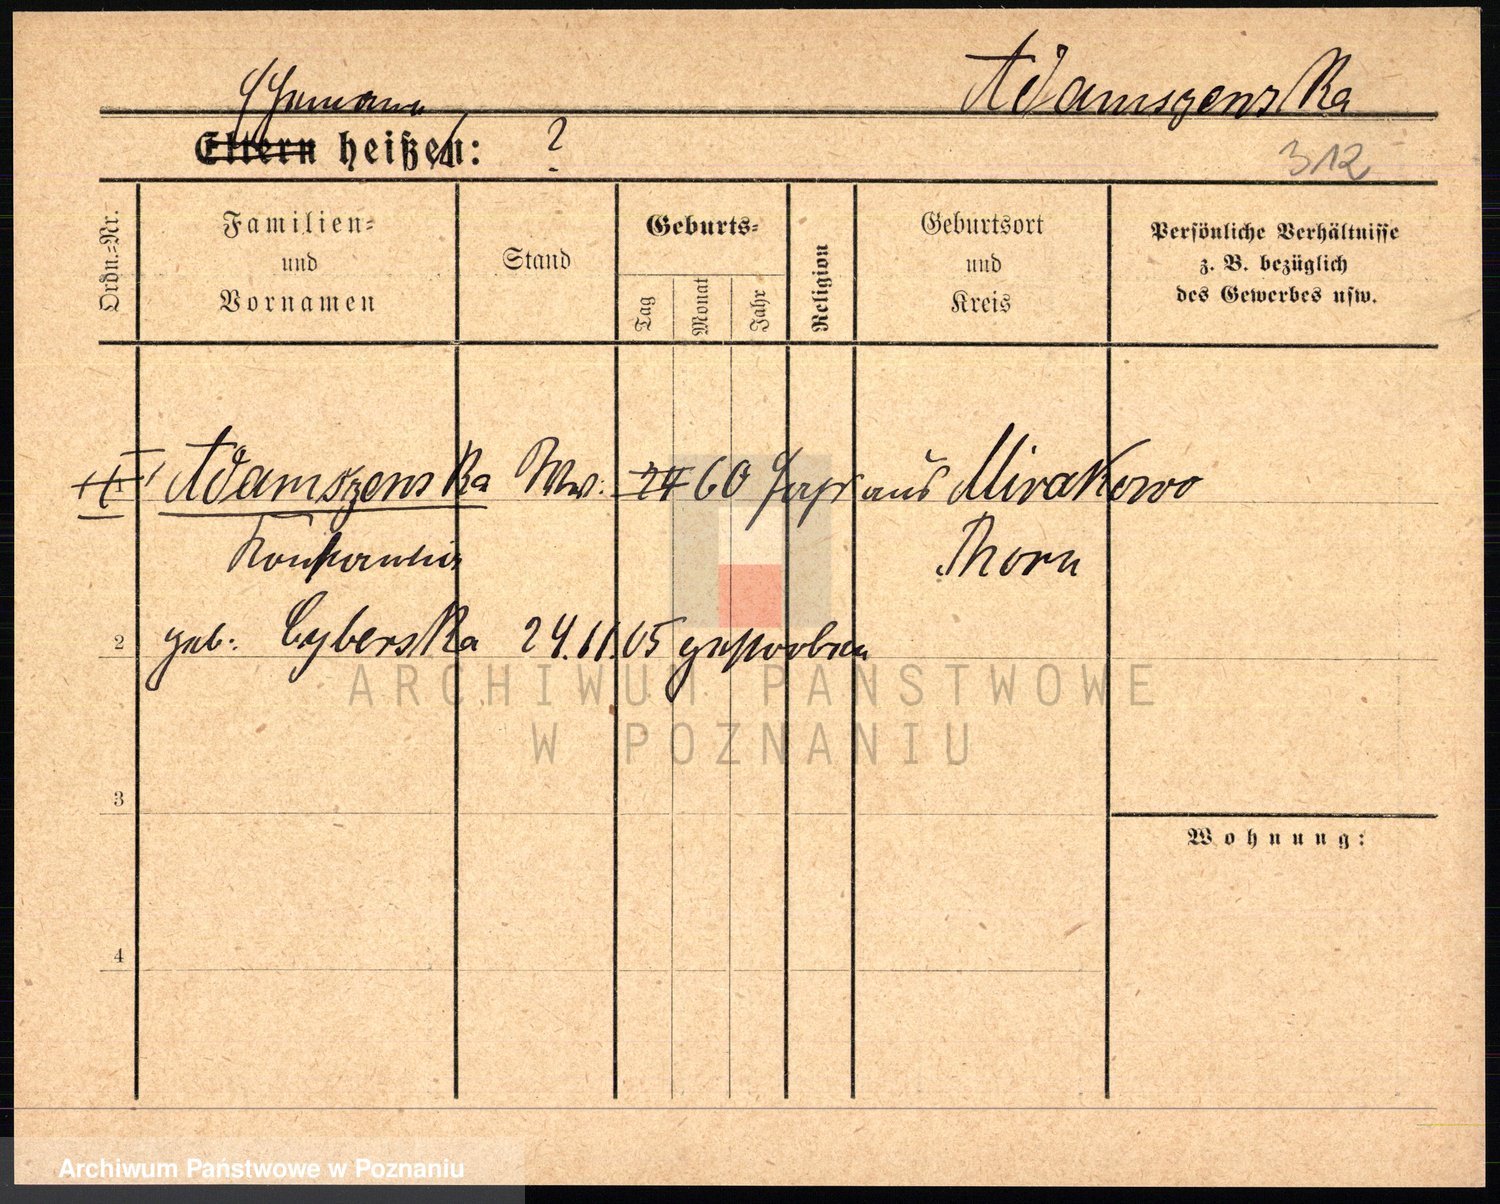 Adamszenska
Ehemann
Eltern heißen: ?
312
Ordn.-Nr.
Familien-
und
Vornamen
Stand
Geburts-
Tag
Monat
Jahr
Religion
Geburtsort
und
Kreis
Persönliche Verhältnisse
z. B. bezüglich
des Gewerbes usw.
Adamszenska Ww. 24 60 Jahr aus Mirakowo
Konstantia Thorn
2 geb. Cyberska 24.11.05 gestorben
ARCHIWUM PAŃSTWOWE
W POZNANIU
3
Wohnung:
4
Archiwum Państwowe w Poznaniu